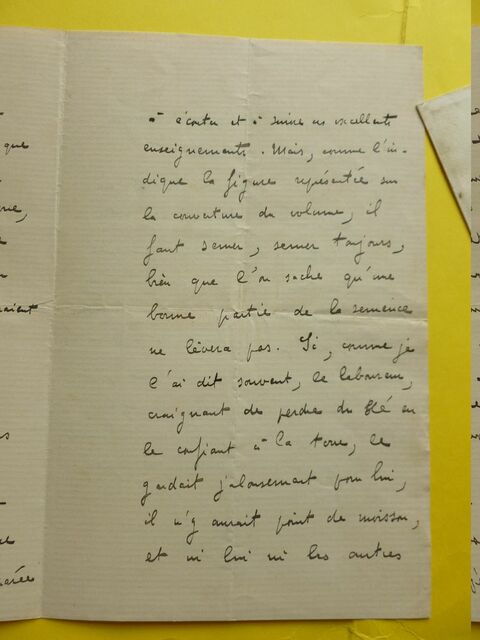 à écouter et à suivre ces excellents
enseignements. Mais, comme l'in-
dique la figure représentée sur
la couverture du volume, il
faut semer, semer toujours,
bien que l'on sache qu'une
bonne partie de la semence
ne lèvera pas. Si, comme je
l'ai dit souvent, le laboureur,
craignant de perdre du blé en
le confiant à la terre, le
gardait jalousement pour lui,
il n'y aurait point de moisson,
et ni lui ni les autres
que